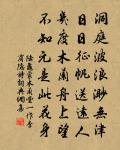 洞庭波浪渺無津
日日征帆送遠人
幾度木蘭舟上望
不知元是此花身
陸龜蒙木蘭堂一作李
商隱詩